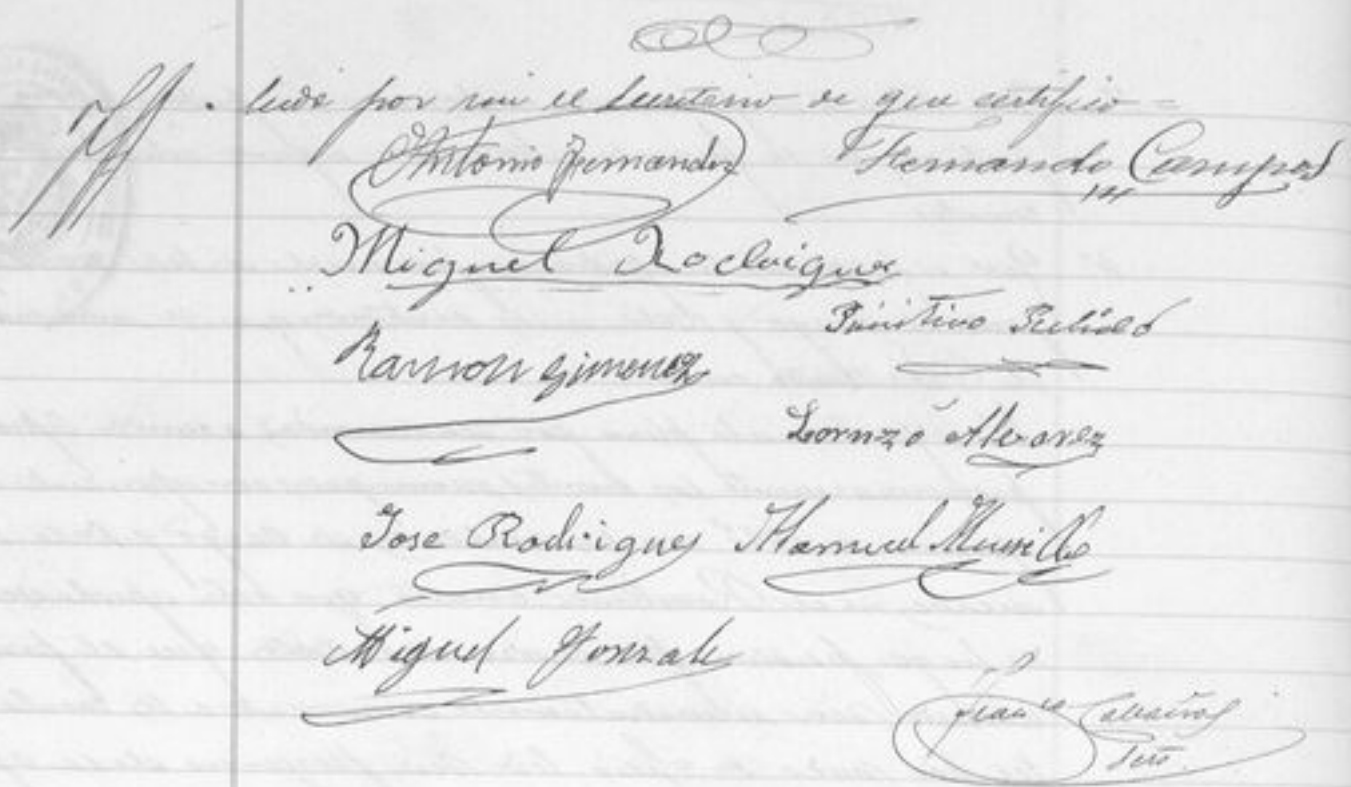 leida por mi el Secretario de que certifico =
Antonio Fernandez Fernando Campos
Miguel Rodrigue
Primitivo
Ramon Gimenez
Lornzo Alvarez
Jose Rodrigues Manuel Murillo
Miguel Gonzale
Franco Cabañas
Srio